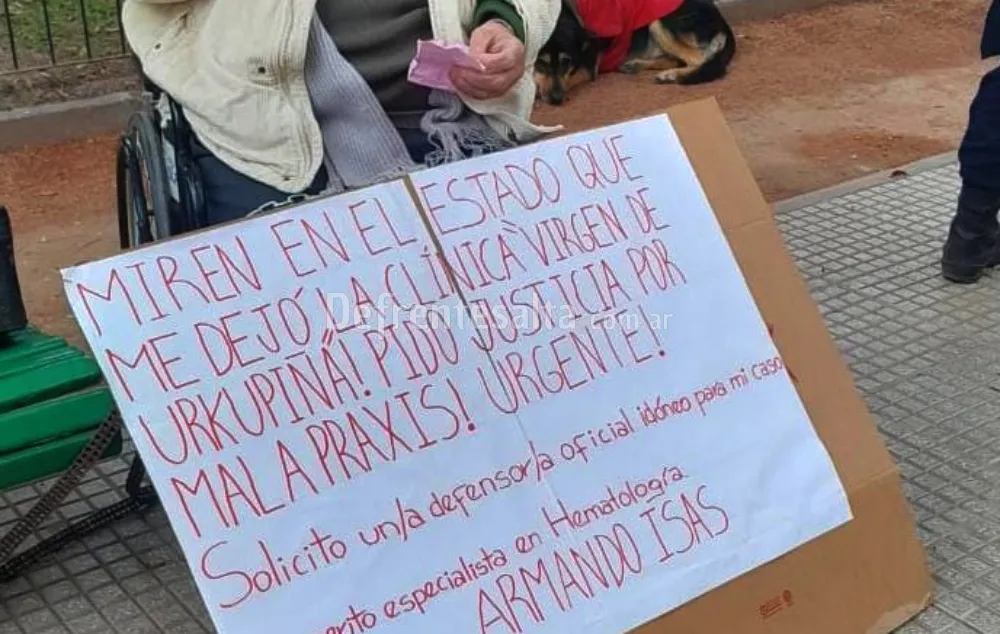 MIREN EN EL ESTADO QUE
ME DEJÓ LA CLÍNICA VIRGEN DE
URKUPIÑA! PIDO JUSTICIA POR
MALA PRAXIS! URGENTE!
Solicito un/a defensor/a oficial idóneo para mi caso
perito especialista en Hematología
ARMANDO ISAS
Defrentesalta.com.ar